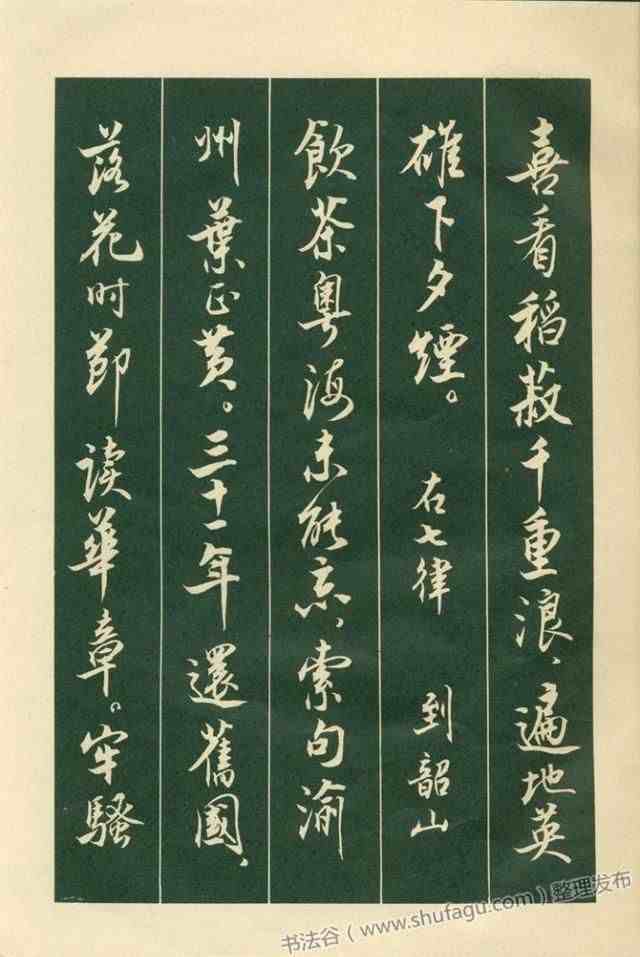 喜看稻菽千重浪、遍地英
雄下夕煙。 右七律 到韶山
飲茶粤海未能忘、索句渝
州葉正黄。三十一年還舊國、
落花时節读華章。牢騷
书法谷（www.shufagu.com）整理发布